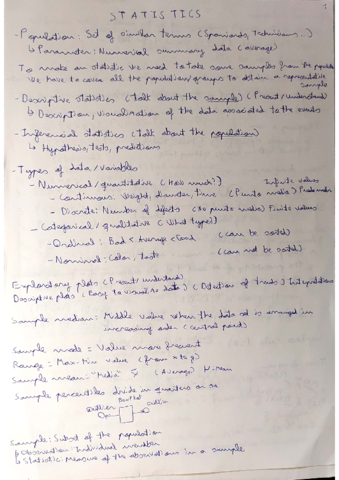 STATISTICS
- Population: Set of similar terms (Spaniards, technicians...)
↳ Parameter: Numerical summary data (average)
To make an statistic we need to take some samples from the population
We have to cover all the population/groups to obtain a representative
sample
- Descriptive statistics (talk about the sample) (Present/understand)
↳ Description, visualization of the data associated to the events
- Inferential statistics (talk about the population)
↳ Hypothesis, tests, predictions
- Types of data/variables
- Numerical/quantitative (How much?) Infinite values
- Continuous: Weight, diameter, time (Punto medio)
- Discrete: Number of defects (No punto medio) Finite values
- Categorical/qualitative (What type?)
- Ordinal: Bad < Average < Good (can be sorted)
- Nominal: Color, taste (can not be sorted)
Exploratory plots (Present/understand)
Descriptive plots (Easy to visualize data) (Detection of trends)
Sample median: Middle value when the data set is arranged in
increasing order (central point)
Sample mode = Value more frequent
Range = Max-Min value (from x to y)
Sample mean: "Media" x̄ (Average) μ mean
Sample percentiles divide in quarters or so
Box Plot
outlier
Sample: Subset of the population
↳ Observation: Individual member
↳ Statistic: Measure of the observations in a sample